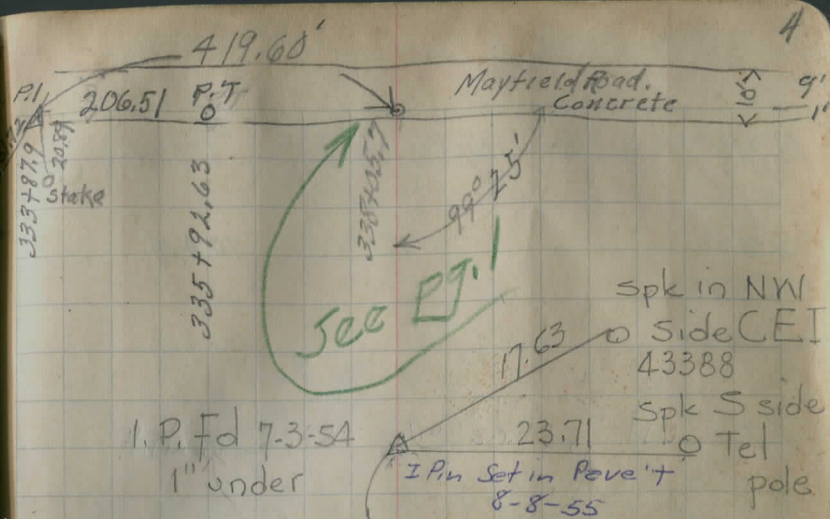 4
419.60'
Mayfield Road.
Concrete
9'
P.I
206.51 P.T
333+87.9
20.89
Stake
335+92.63
99° 25'
See Pg. 1
Spk in NW
Side CEI
43388
17.63
Spk S side
Tel
pole
23.71
I. P. Fd 7-3-54
1" under
I Pin Set in Pave't
8-8-55